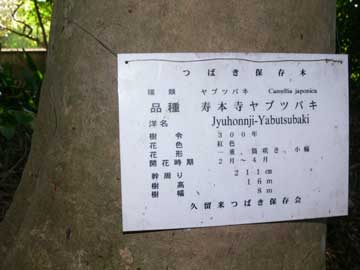 つばき保存木
種類 ヤブツバキ Camellia japonica
品種 寿本寺ヤブツバキ
洋名 Jyuhonnji-Yabutsubaki
樹令 300年
花色 紅色
花形 一重、筒咲き、小輪
開花時期 2月～4月
幹周り 211㎝
樹高 16m
樹幅 8m
久留米つばき保存会